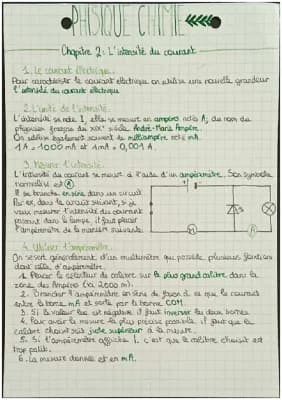 PHYSIQUE CHIMIE
Chapitre 2: L'intensité du courant
1. Le courant électrique:
Pour caractériser le courant électrique on utilise une nouvelle grandeur
l'intensité du courant électrique
2. L'unité de l'intensité.
L'intensité se note I, elle se mesure en ampères notés A, du nom du
physicien français du XIXe siècle André-Marie Ampère.
On utilise également souvent le milliampère noté mA.
1A = 1000 mA et 1mA = 0,001 A.
3. Mesurer l'intensité.
L'intensité du courant se mesure à l'aide d'un ampèremètre. Son symbole
normalisé est A
Il se branche en série dans un circuit
Par ex, dans le circuit suivant, si je
veux mesurer l'intensité du courant
passant dans la lampe, il faut placer
l'ampèremètre de la manière suivante.
4. Utiliser l'ampèremètre.
On se sert généralement d'un multimètre qui possède plusieurs fonctions
dont celle d'ampèremètre.
1. Placer le sélecteur de calibre sur le plus grand calibre dans la
zone des Ampères (ici 2000 m).
2. Brancher l'ampèremètre en série de façon à ce que le courant
entre la borne mA et sorte par la borne COM
3. Si la valeur lue est négative il faut inverser les deux bornes.
4. Pour avoir la mesure la plus précise possible, il faut que le
calibre choisi soit juste supérieur à la mesure.
5. Si l'ampèremètre affiche 1. c'est que le calibre choisit est
trop petit.
6. La mesure donnée est en mA.